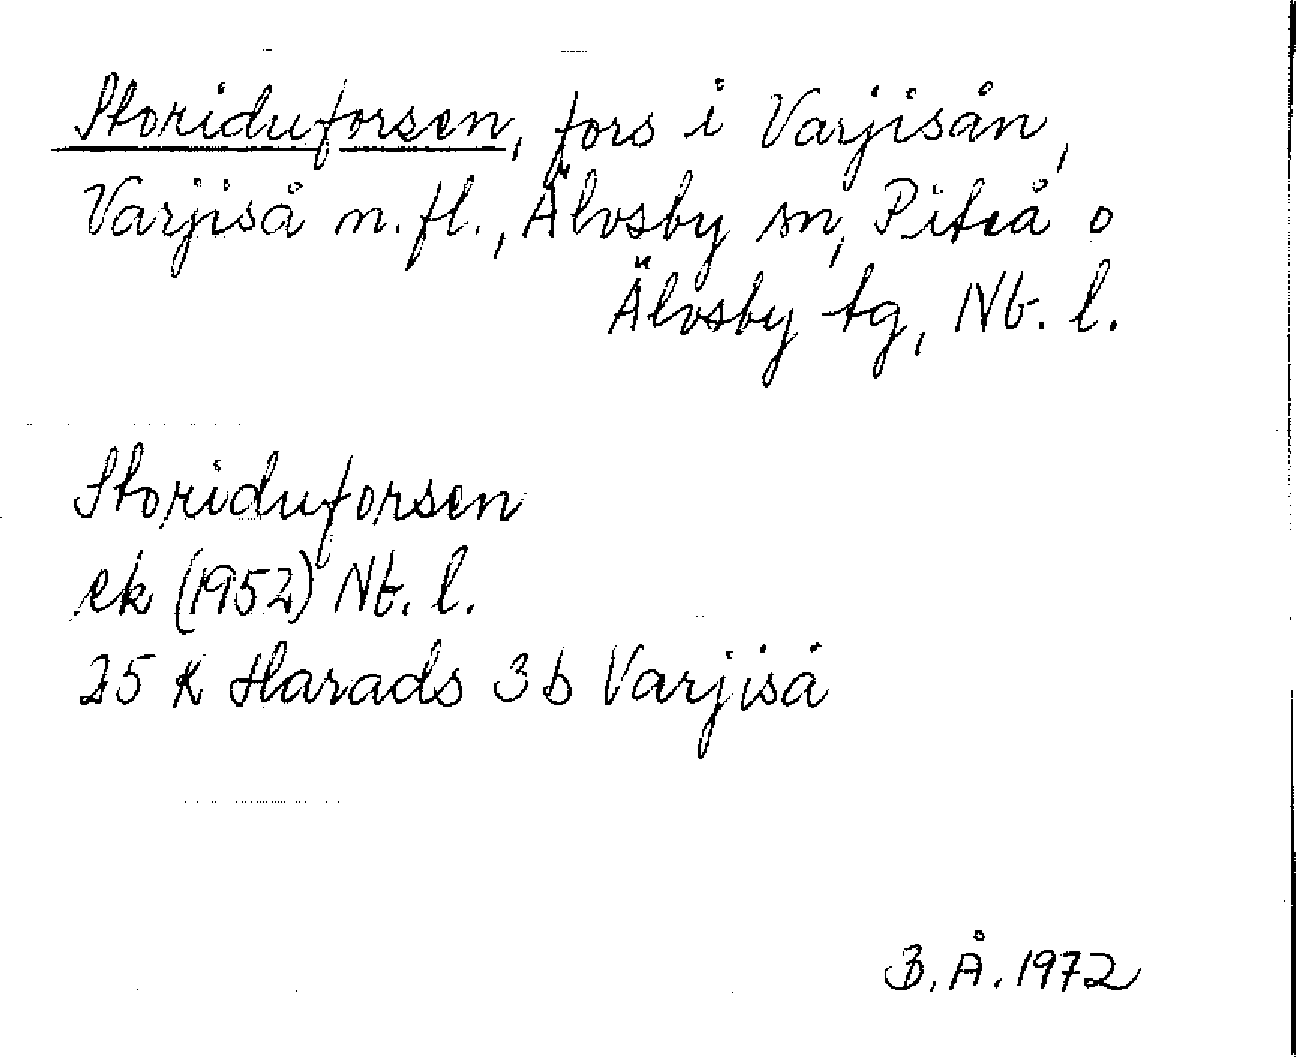 Storiduforsen, fors i Varjisån,
Varjiså n. fl., Älvsby sn, Piteå o
Älvsby tg, Nb. l.
Storiduforsen
ek (1952) Nb. l.
25 K Harads 3 b Varjiså
B. Å. 1972